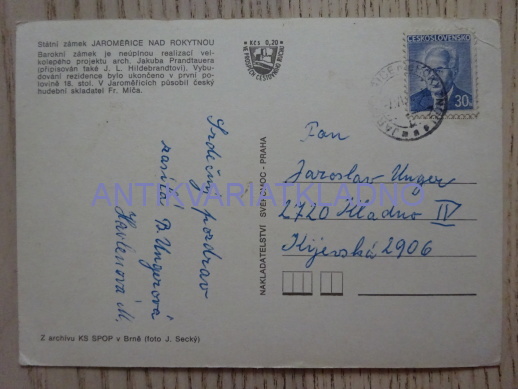 Státní zámek JAROMĚŘICE NAD ROKYTNOU
Barokní zámek je neúplnou realizací vel-
kolepého projektu arch. Jakuba Prandtauera
(připisován také J. L. Hildebrandtovi). Vybu-
dování rezidence bylo ukončeno v první po-
lovině 18. stol. V Jaroměřicích působil český
hudební skladatel Fr. Míča.
Kčs 0,20
ČESKOSLOVENSKO
30h
Srdečný pozdrav
zasílá B. Ungerová
M.
Pan
Jaroslav Unger
2720 Kladno IV
Kyjevská 2906
ANTIKVARIATKLADNO
NAKLADATELSTVÍ SVĚT PRAHA
Z archivu KS SPOP v Brně (foto J. Secký)